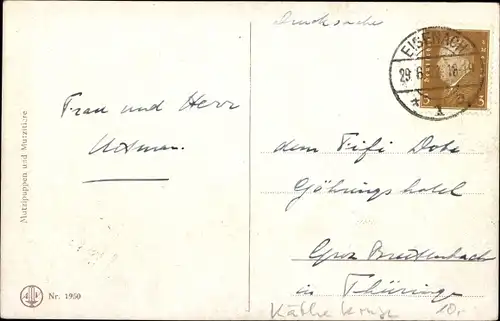 Drucksache
EISENACH
29.6. 18-19
5 5
Frau und Herr
dem Fifi Dobe
Göhringshotel
Gross Breitenbach
in Thüringe
Mutzipuppen und Mutzitiere
AV
Nr. 1950
Käthe Kruse
10.-